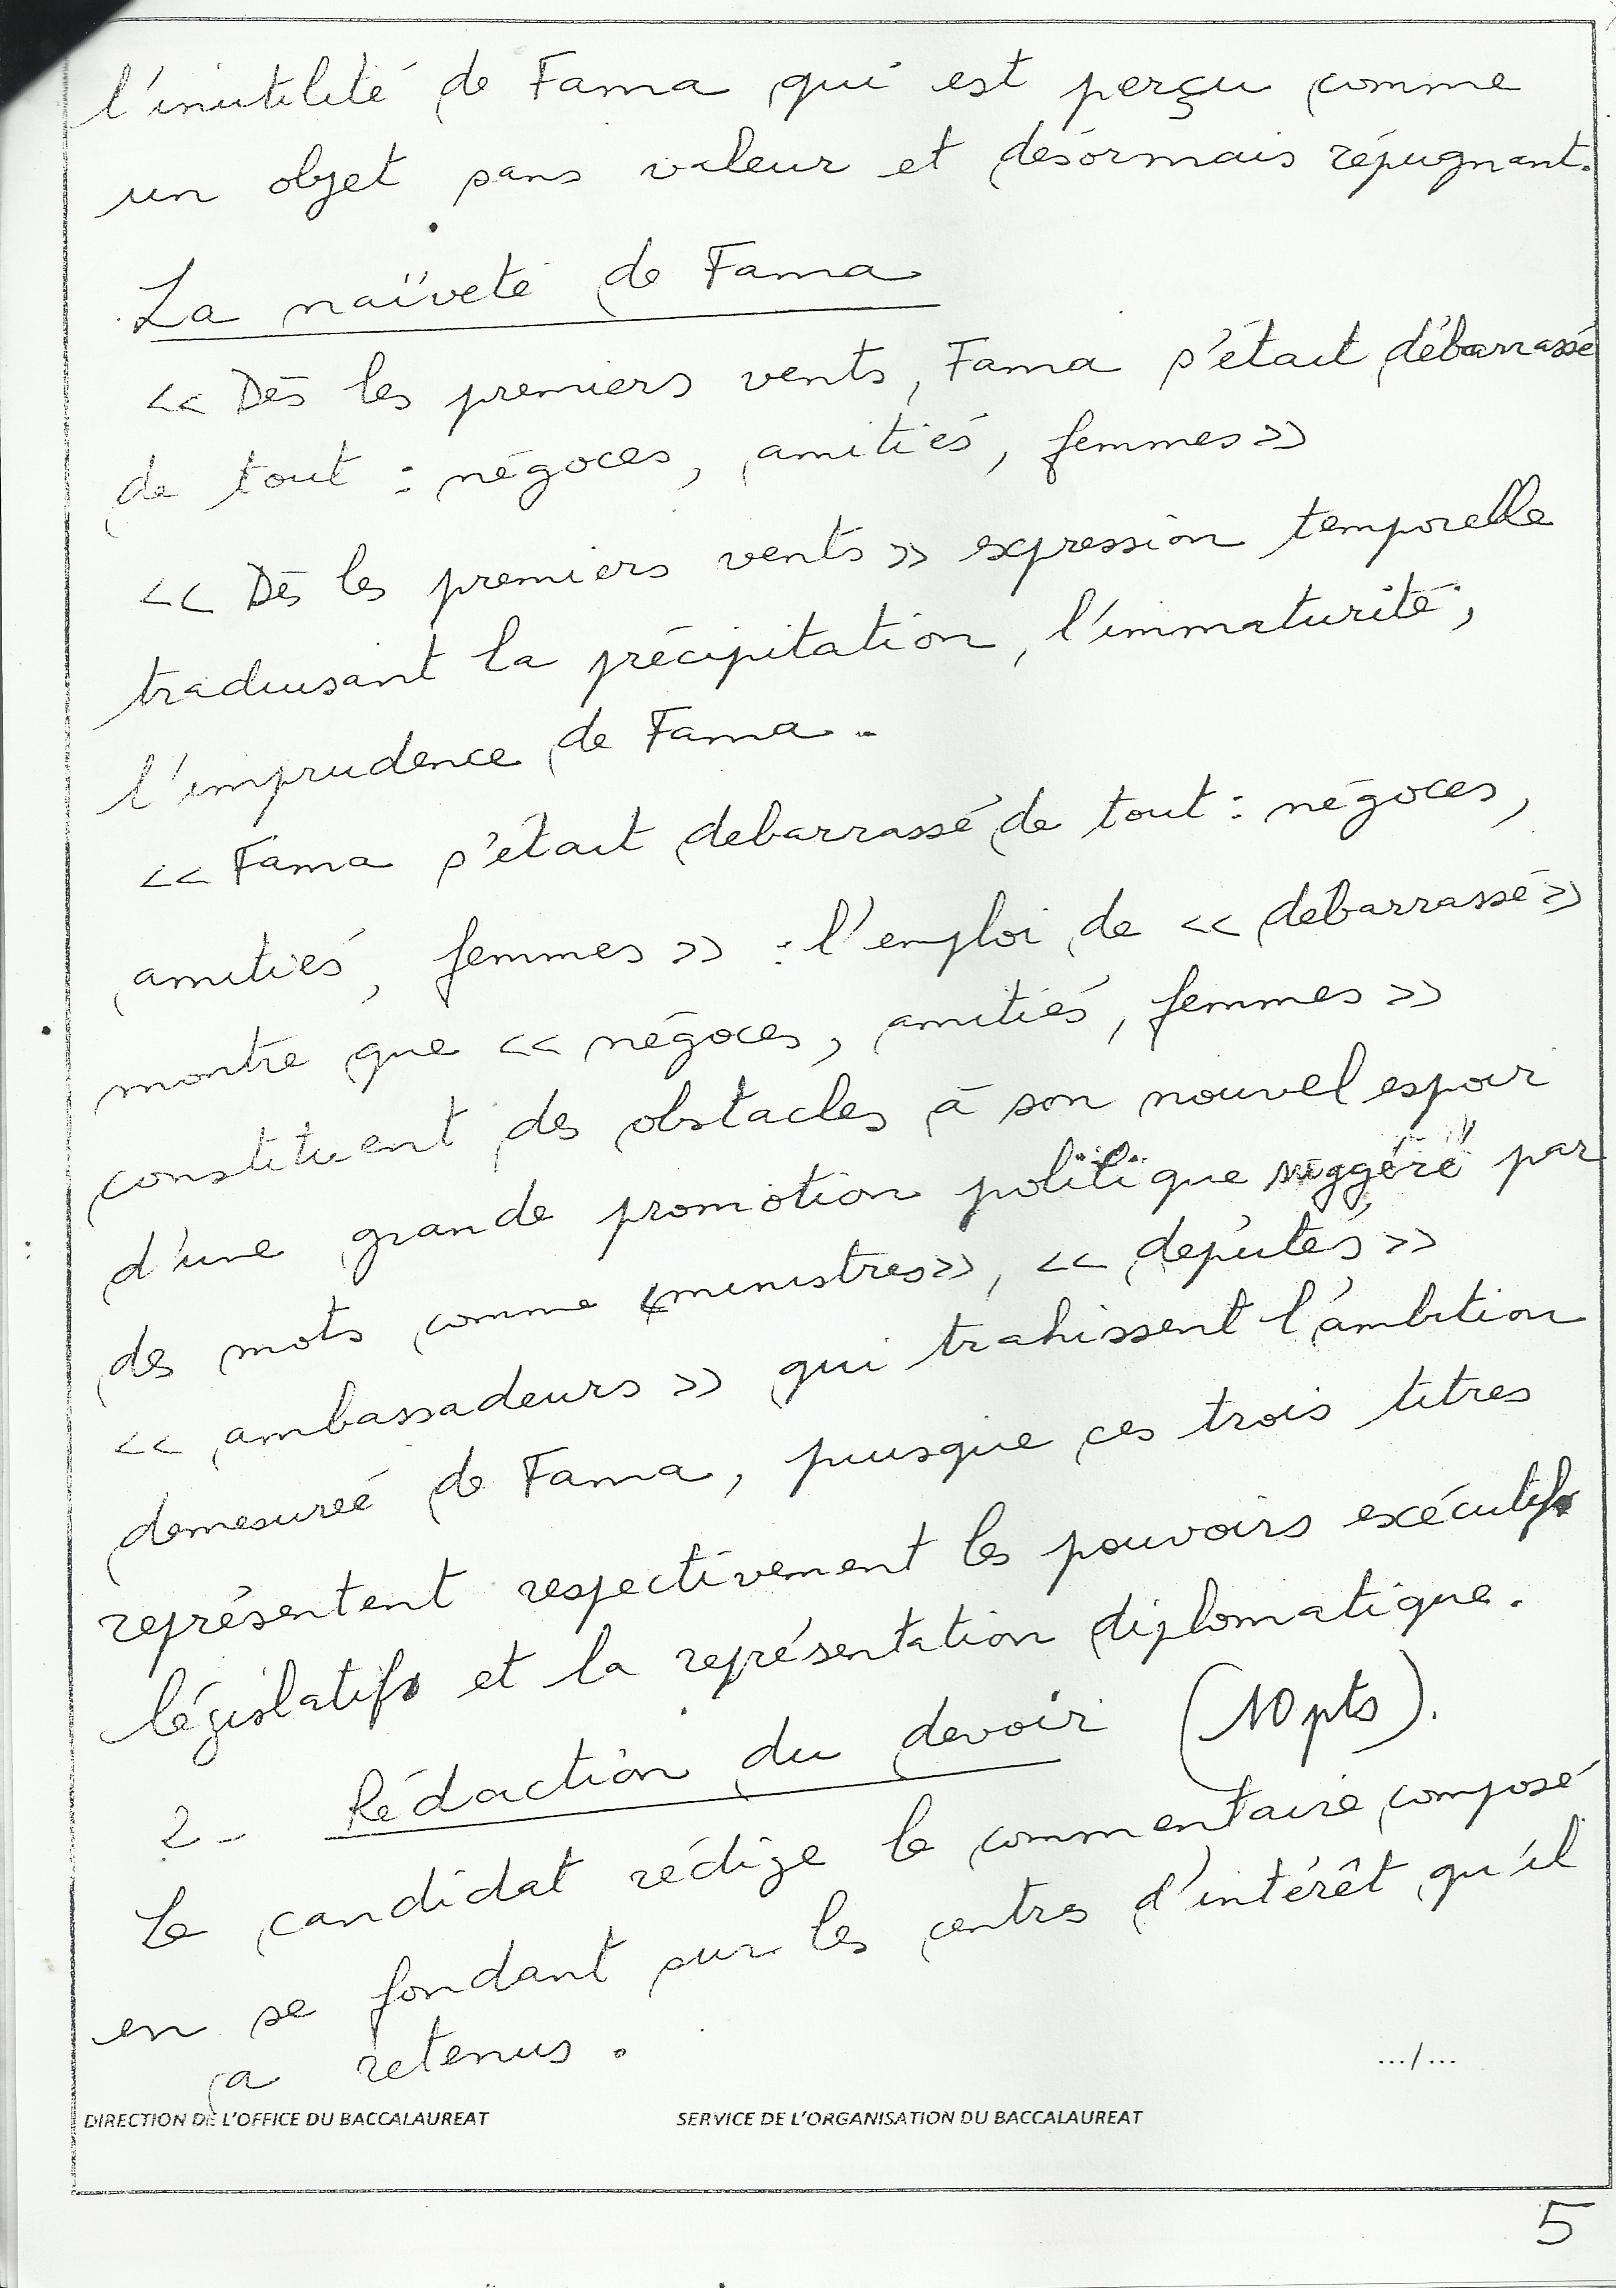 l'inutilité de Fama qui est perçu comme
un objet sans valeur et désormais répugnant.
La naïveté de Fama
<< Dès les premiers vents, Fama s'était débarrassé
de tout : négoces, amitiés, femmes >>
<< Dès les premiers vents >> expression temporelle
traduisant la précipitation, l'immaturité,
l'imprudence de Fama.
<< Fama s'était debarrassé de tout : négoces,
amitiés, femmes >> : l'emploi de << débarrassé >>
montre que << négoces, amitiés, femmes >>
constituent des obstacles à son nouvel espoir
d'une grande promotion politique suggéré par
des mots comme << ministres >>, << députés >>
<< ambassadeurs >> qui trahissent l'ambition
demesurée de Fama, puisque ces trois titres
représentent respectivement les pouvoirs exécutifs
législatifs et la représentation diplomatique.
2- Rédaction du devoir (10 pts).
Le candidat rédige le commentaire composé
en se fondant sur les centres d'intérêt qu'il
a retenus.
.../...
DIRECTION DE L'OFFICE DU BACCALAUREAT SERVICE DE L'ORGANISATION DU BACCALAUREAT
5